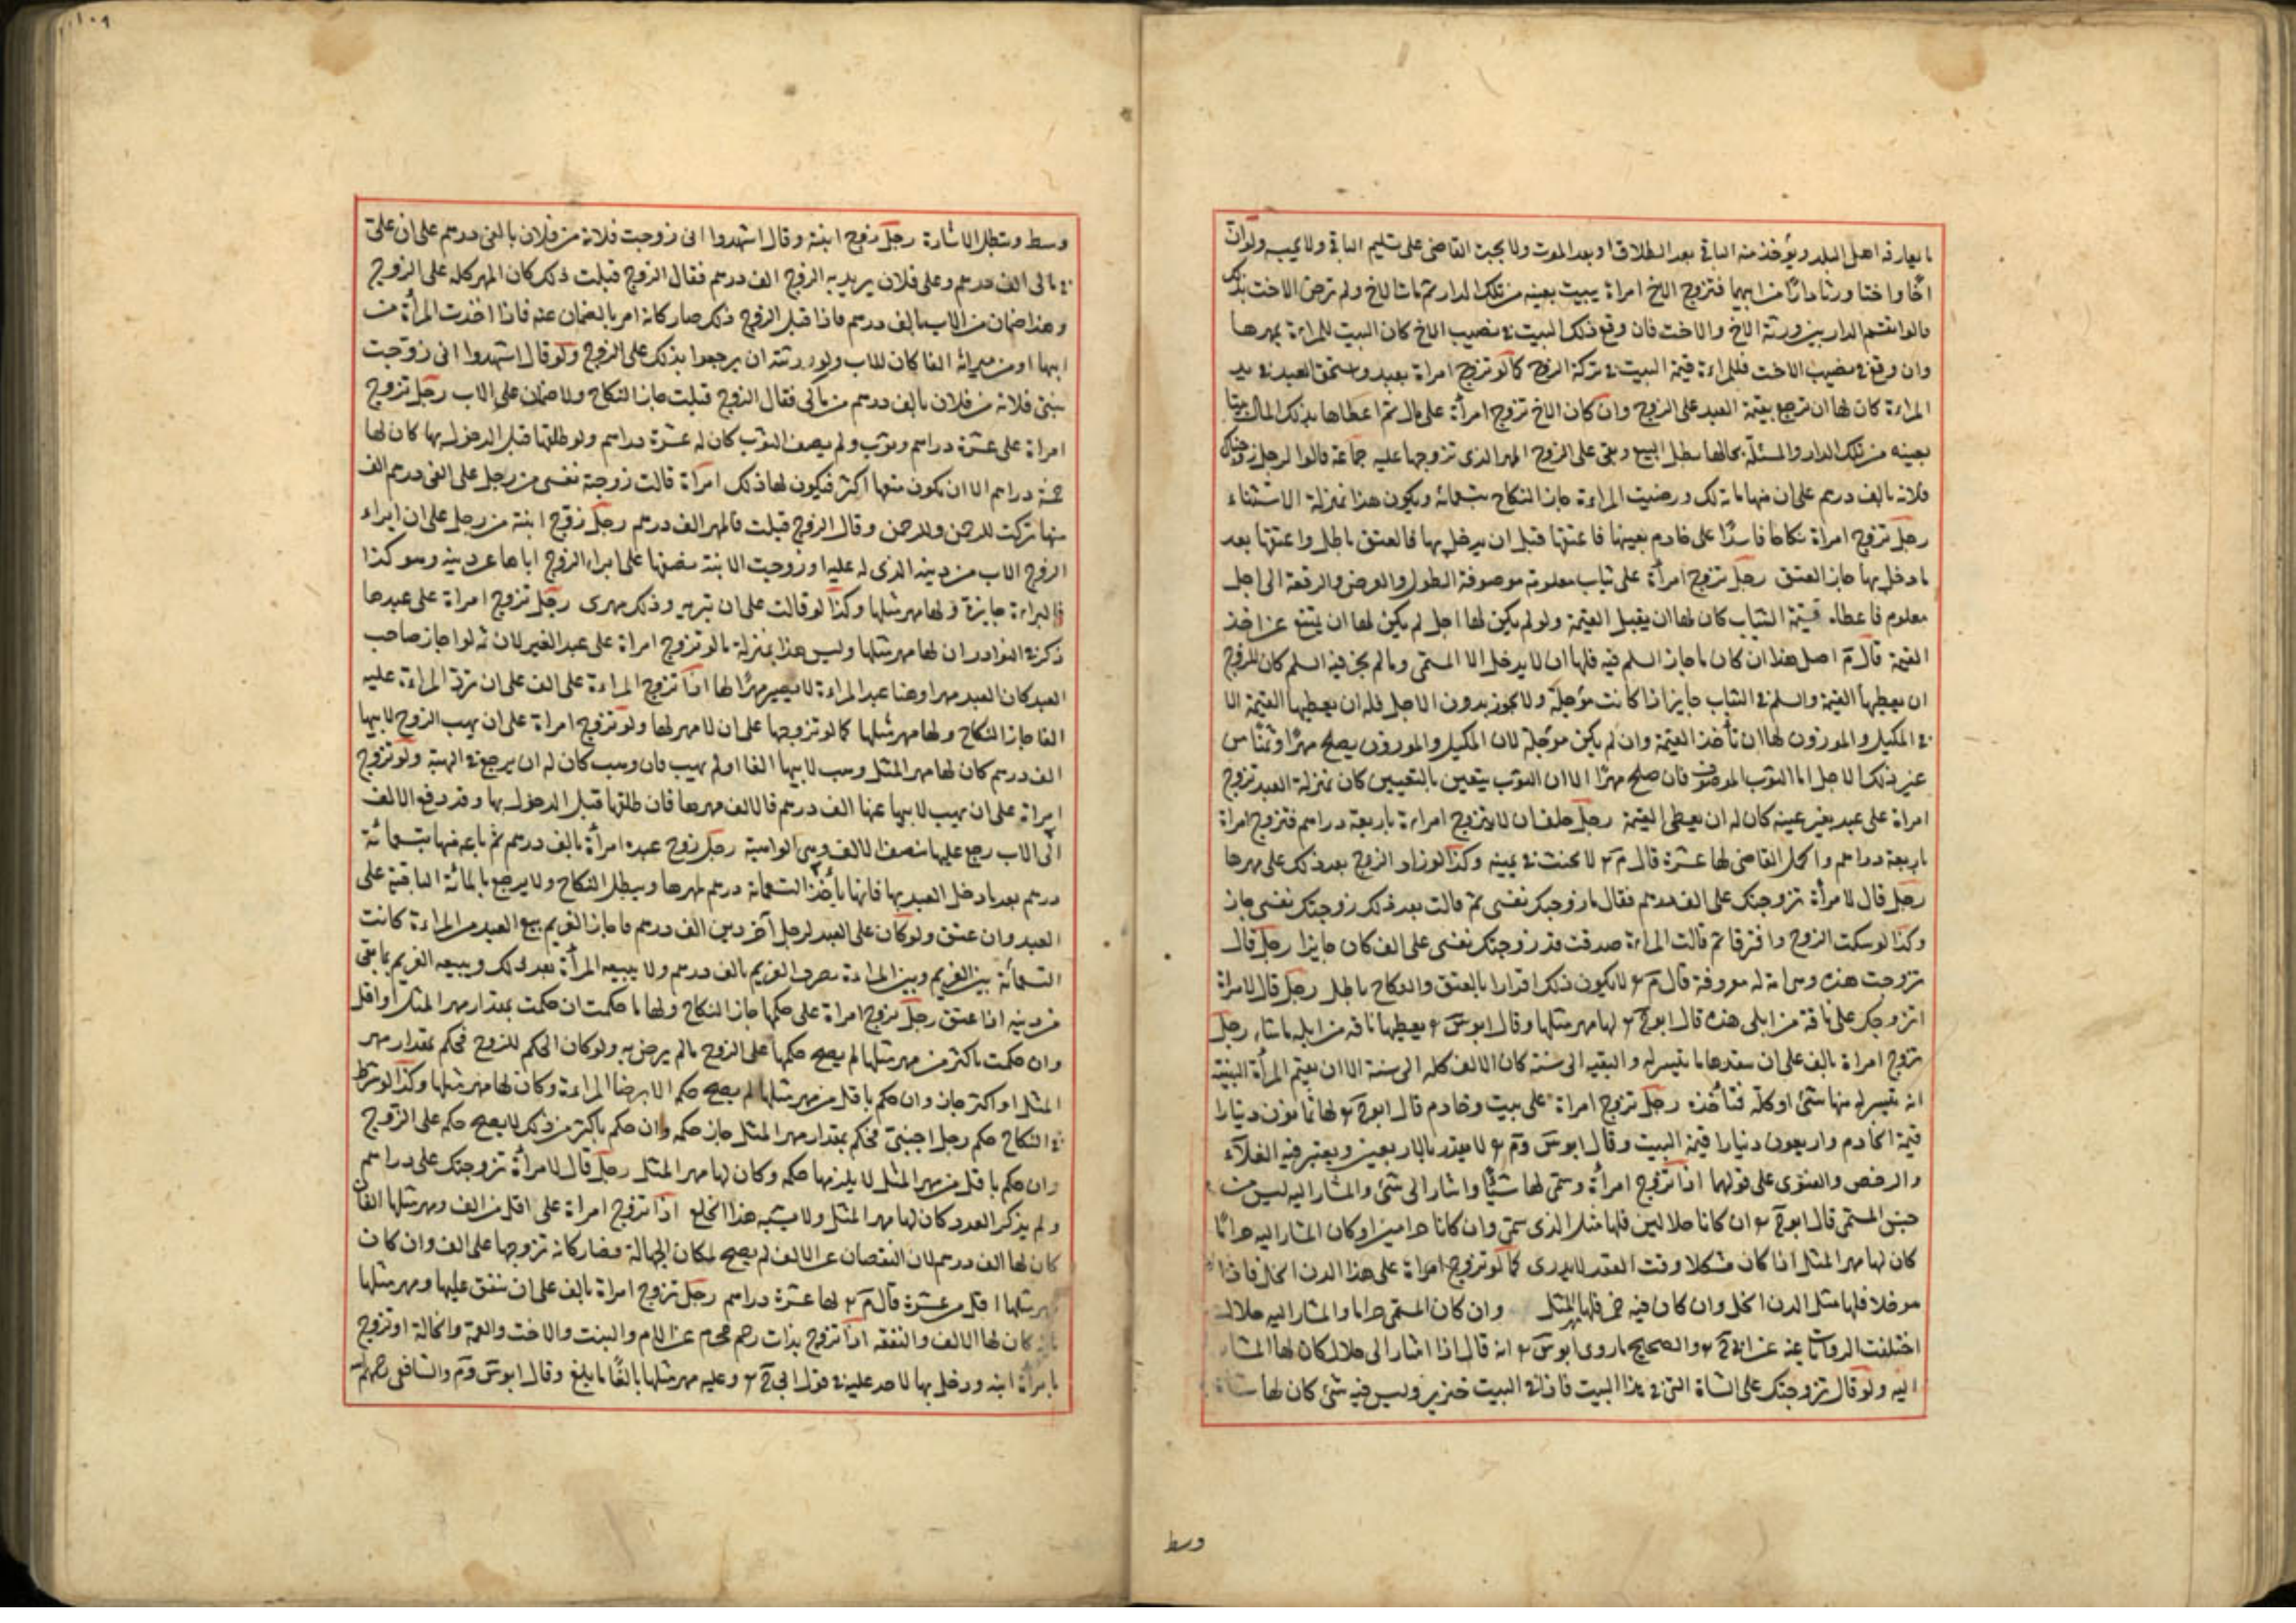 ما يعارفه اهل البلد ويؤخذ منه الباقي بعد الطلاق او بعد الموت ولا يجبر القاضي على تسليم الباقي ولا يحبسه ولو ان
اخا واختا ورثا دارا من ابيهما فتزوج الاخ امراة ببيت بعينه من تلك الدار ثم مات الاخ ولم ترض الاخت بذلك
قالوا يقسم الدار بين ورثة الاخ والاخت فان وقع ذلك البيت في نصيب الاخ كان البيت للمراءة بمهرها
وان وقع في نصيب الاخت فللمراءة قيمة البيت في تركة الزوج كما لو تزوج امراة بعبد واستحق العبد في يد
المراءة كان لها ان ترجع بقيمة العبد على الزوج وان كان الاخ تزوج امرأة على مال ثم اعطاها بذلك المال بيتا
بعينه من تلك الدار والمسئلة بحالها بطل البيع وبقي على الزوج المهر الذي تزوجها عليه جماعة قالوا لرجل زوجناك
فلانة بالف درهم على ان منها مائة لك ورضيت المراءة جاز النكاح بتسعمائة ويكون هذا بمنزلة الاستثناء
رجل تزوج امراة نكاحا فاسدا على خادم بعينها فاعتقتها قبل ان يدخل بها فالعتق باطل واعتقتها بعد
ما دخل بها جاز العتق رجل تزوج امرأة على ثياب معلومة موصوفة الطول والعرض والرقعة الى اجل
معلوم فاعطاها قيمة الثياب كان لها ان يقبل القيمة ولو لم يكن لها اجل لم يكن لها ان يمتنع عن اخذ
القيمة قال اصل هذا ان كان ما جاز السلم فيه فلها ان لا يدخل الا المسمى وما لم يجز فيه السلم كان للزوج
ان يعطيها القيمة والسلم في الثياب جايز اذا كانت مؤجلة ولا يجوز بدون الاجل فله ان يعطيها القيمة الا
في المكيل والموزون لها ان تأخذ القيمة وان لم يكن مؤجلة لان المكيل والموزون يصلح مهرا وثمنا من
غير ذلك الاجل اما الثوب الموصوف فان صلح مهرا الا ان الثوب يتعين بالتعيين كان بمنزلة العبد تزوج
امراة على عبد بغير عينه كان له ان يعطي القيمة رجل حلف ان لا يتزوج امراءة باربعة دراهم فتزوج امراة
باربعة دراهم واكمل القاضي لها عشرة قال م لا يحنث في يمينه وكذا لو زاد الزوج بعد ذلك على مهرها
رجل قال لامرأة تزوجتك على الف درهم فقال ما زوجتك نفسي ثم قالت بعد ذلك زوجتك نفسي جاز
وكذا لو سكت الزوج وافترقا ثم قالت المراءة صدقت قد زوجتك نفسي على الف كان جايزا رجل قال
تزوجت هذه وهي امة له معروفة قال م لا يكون ذلك اقرارا بالعتق والنكاح باطل رجل قال لامراة
اتزوجك على ناقة من ابلي هذه قال ابو ح لها مهر مثلها وقال ابو س يعطيها ناقة من ابله ما شاء رجل
تزوج امراة بالف على ان ينقدها ما تيسر له والبقية الى سنة كان الالف كله الى سنة الا ان يقيم المرأة البينة
انه تيسر له منها شئ او كله فتأخذه رجل تزوج امراة على بيت وخادم قال ابو ح لها ثمانون دينارا
قيمة الخادم واربعون دينارا قيمة البيت وقال ابو س وم لا يقدر بالاربعين ويعتبر فيه الغلاء
والرخص والفتوى على قولهما اذا تزوج امرأة وسمى لها شيئا واشار الى شئ والمشار اليه ليس من
جنس المسمى قال ابو ح ان كانا حلالين فلها مثل الذي سمى وان كانا حرامين او كان المشار اليه حراما
كان لها مهر المثل اذا كان مشكلا وقت العقد لا يدرى كما لو تزوج امراة على هذا الدن الخل فاذا
هو خل فلها مثل الدن الخل وان كان فيه خمر فلها المثل وان كان المسمى حراما والمشار اليه حلالا
اختلفت الروايات عنه عن ابي ح والصحيح ما روى ابو س انه قال اذا اشار الى حلال كان لها المشار
اليه ولو قال تزوجتك على الشاة التي في هذا البيت فاذا في البيت خنزير وليس فيه شئ كان لها شاة
وسط
وسط وتبطل الاشارة رجل زوج ابنته وقال اشهدوا اني زوجت فلانة من فلان بالفي درهم على ان علي
في مالي الف درهم وعلى فلان يريد به الزوج الف درهم فقال الزوج قبلت ذلك كان المهر كله على الزوج
وهذا ضمان من الاب بالف درهم فاذا قبل الزوج ذلك صار كانه امر بالضمان عنه فاذا اخذت المرأة من
ابيها او من ميراثه الفا كان للاب ولورثته ان يرجعوا بذلك على الزوج ولو قال اشهدوا اني زوجت
بنتي فلانة من فلان بالف درهم من مالي فقال الزوج قبلت جاز النكاح ولا ضمان على الاب رجل تزوج
امراة على عشرة دراهم وثوب ولم يصف الثوب كان له عشرة دراهم ولو طلقها قبل الدخول بها كان لها
خمسة دراهم الا ان يكون متعها اكثر فيكون لها ذلك امرأة قالت زوجت نفسي من رجل على الفي درهم الف
منها تركت للرحمن وللرحمن وقال الزوج قبلت فالمهر الف درهم رجل زوج ابنته من رجل على ان ابراء
الزوج الاب من دينه الذي له عليه او زوجت الابنة بضعها على ابراء الزوج اباها عن دينه وهو كذا
فالبراءة جايزة ولها مهر مثلها وكذا لو قالت على ان تبريه وذلك مهري رجل تزوج امراة على عبدها
ذكر في النوادر ان لها مهر مثلها وليس هذا بمنزلة ما لو تزوج امراة على عبد الغير لان ثمه لو اجاز صاحب
العبد كان العبد مهرا وهنا عبد المراءة لا يصير مهرا لها اذا تزوج المراءة على الف على ان ترد المراءة عليه
الفا جاز النكاح ولها مهر مثلها كما لو تزوجها على ان لا مهر لها ولو تزوج امراة على ان يهب الزوج لابيها
الف درهم كان لها مهر المثل وهب لابيها الفا او لم يهب فان وهب كان له ان يرجع في الهبة ولو تزوج
امراة على ان يهب لابيها عنها الف درهم فالالف مهرها فان طلقها قبل الدخول بها وقد دفع الالف
الى الاب رجع عليها بنصف الالف وهي الواهبة رجل زوج عبده امرأة بالف درهم ثم باعه منها بتسعمائة
درهم بعد ما دخل العبد بها فانها يأخذ التسعمائة درهم لمهرها ويبطل النكاح ولا يرجع بالمائة الباقية على
العبد وان عتق ولو كان على العبد لرجل آخر دين الف درهم فاجاز الغريم بيع العبد من المراءة كانت
التسعمائة بين الغريم وبين المراءة يضرب الغريم بالف درهم ولا يتبعه المرأة بعد ذلك ويتبعه الغريم بما بقي
من دينه اذا عتق رجل تزوج امراة على حكمها جاز النكاح ولها ما حكمت ان حكمت بمقدار مهر المثل او اقل
وان حكمت باكثر من مهر مثلها لم يصح حكمها على الزوج ما لم يرض به ولو كان الحكم للزوج فحكم بمقدار مهر
المثل او اكثر جاز وان حكم باقل من مهر مثلها لم يصح حكمه الا برضا المراءة وكان لها مهر مثلها وكذا لو شرط
في النكاح حكم رجل اجنبي فحكم بمقدار مهر المثل جاز حكمه وان حكم باكثر من ذلك لا يصح حكمه على الزوج
وان حكم باقل من مهر المثل لا يلزمها حكمه وكان لها مهر المثل رجل قال لامرأة تزوجتك على دراهم
ولم يذكر العدد كان لها مهر المثل ولا يشبه هذا الخلع اذا تزوج امراة على اقل من الف ومهر مثلها الفان
كان لها الف درهم لان النقصان عن الالف لم يصح لمكان الجهالة فصار كانه تزوجها على الف وان كان
مهر مثلها اقل من عشرة قال م لها عشرة دراهم رجل تزوج امراة بالف على ان ينفق عليها ومهر مثلها
كان لها الالف والنفقة اذا تزوج بذات رحم محرم عن الام والبنت والاخت والعمة والخالة او تزوج
بامرأة ابنه ودخل بها لا حد عليه في قول ابي ح وعليه مهر مثلها بالغا ما بلغ وقال ابو س وم والشافعي رحمهم الله